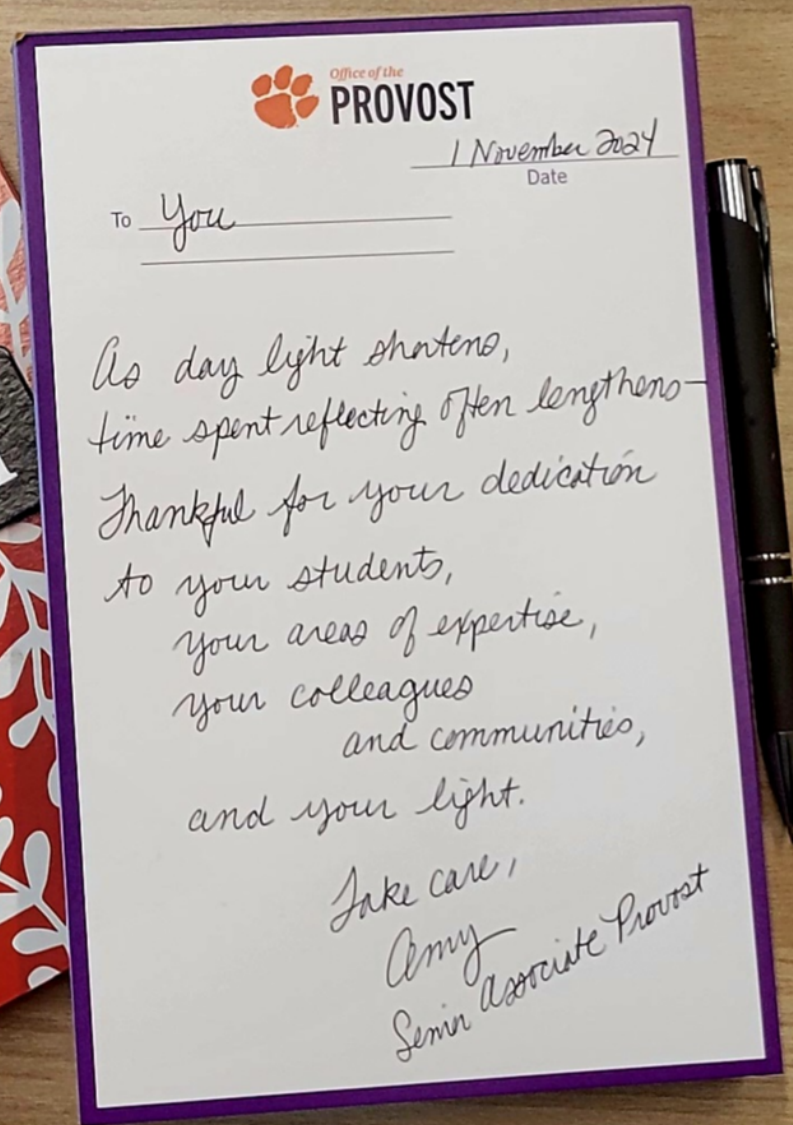 Office of the
PROVOST
1 November 2024
Date
To You
As day light shortens,
time spent reflecting often lengthens—
Thankful for your dedication
to your students,
your areas of expertise,
your colleagues
and communities,
and your light.
Take care,
Amy
Senior Associate Provost